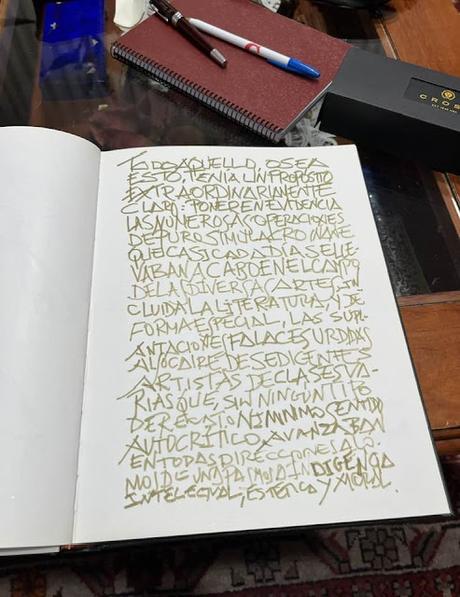 TODO AQUELLO, O SEA
ESTO, TENIA UN PROPOSITO
EXTRAORDINARIAMENTE
CLARO: PONER EN EVIDENCIA
LAS NUMEROSAS OPERACIONES
DE PURO SIMULACRO INANE
QUE CASI CADA DIA SE LLE
VABAN A CABO EN EL CAMPO
DE LAS DIVERSAS ARTES, IN
CLUIDA LA LITERATURA, Y DE
FORMA ESPECIAL, LAS SUPL
ANTACIONES FALACES URDIDAS
AL SOCAIRE DE SEDICENTES
ARTISTAS DE CLASES VA-
RIAS QUE, SIN NINGUN TIPO
DE RECATO NI MINIMO SENTIDO
AUTOCRITICO AVANZABAN
EN TODAS DIRECCIONES A LO-
MOS DE UNA PASMOSA INDIGENCIA
INTELECTUAL, ESTETICA Y MORAL.
CROS